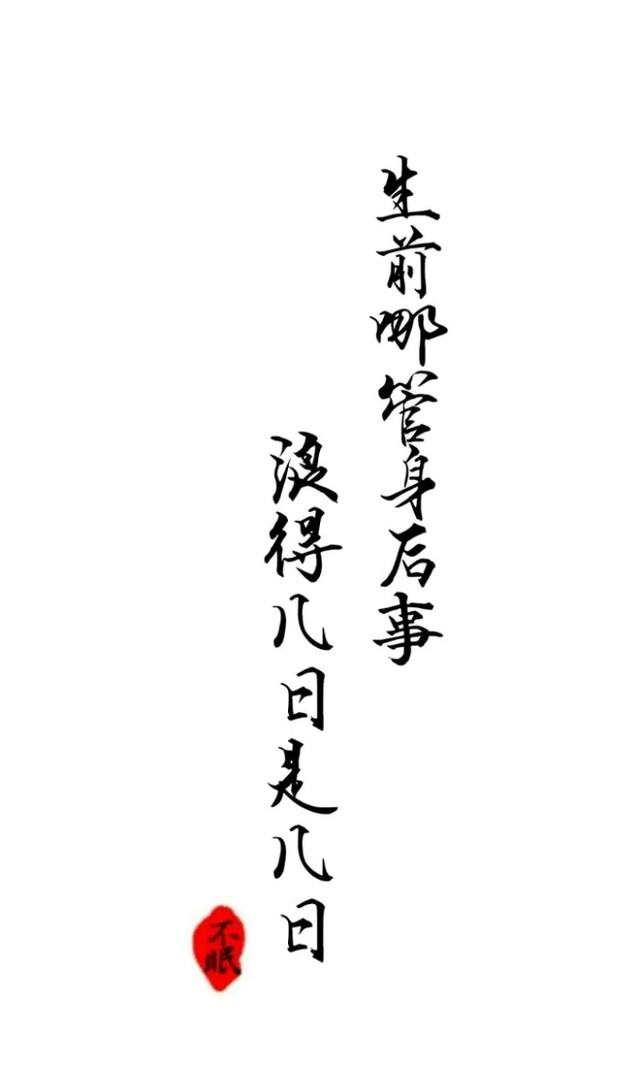 生前哪管身后事
浪得几日是几日
不眠